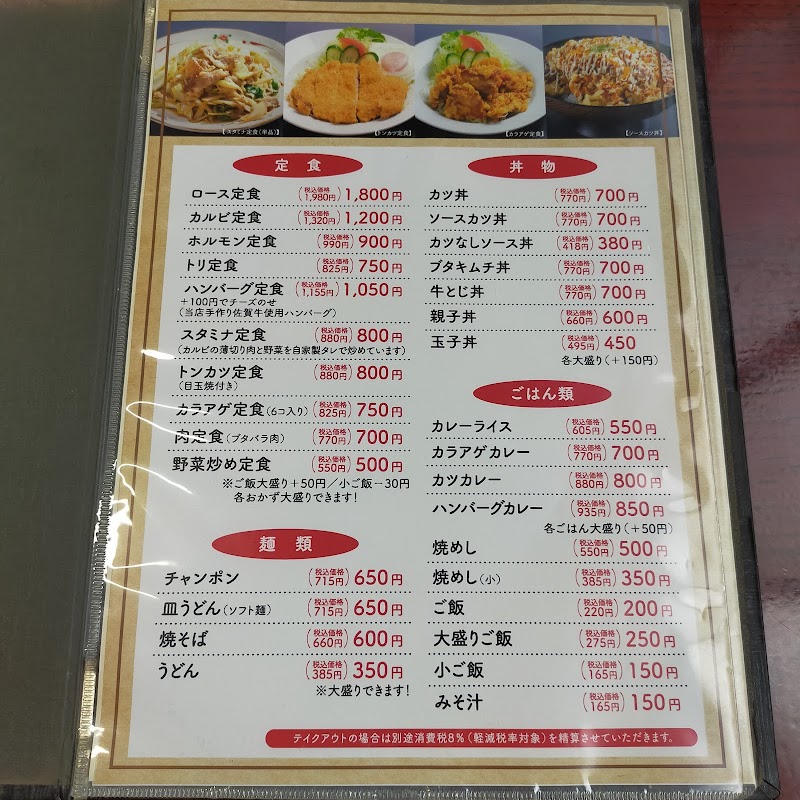 【スタミナ定食(単品)】
【トンカツ定食】
【カラアゲ定食】
【ソースカツ丼】
定食
ロース定食 (税込価格1,980円) 1,800円
カルビ定食 (税込価格1,320円) 1,200円
ホルモン定食 (税込価格990円) 900円
トリ定食 (税込価格825円) 750円
ハンバーグ定食 (税込価格1,155円) 1,050円
+100円でチーズのせ
(当店手作り佐賀牛使用ハンバーグ)
スタミナ定食 (税込価格880円) 800円
(カルビの薄切り肉と野菜を自家製タレで炒めています)
トンカツ定食 (税込価格880円) 800円
(目玉焼付き)
カラアゲ定食(6コ入り) (税込価格825円) 750円
肉定食(ブタバラ肉) (税込価格770円) 700円
野菜炒め定食 (税込価格550円) 500円
※ご飯大盛り+50円/小ご飯-30円
各おかず大盛りできます!
麺類
チャンポン (税込価格715円) 650円
皿うどん(ソフト麺) (税込価格715円) 650円
焼そば (税込価格660円) 600円
うどん (税込価格385円) 350円
※大盛りできます!
丼物
カツ丼 (税込価格770円) 700円
ソースカツ丼 (税込価格770円) 700円
カツなしソース丼 (税込価格418円) 380円
ブタキムチ丼 (税込価格770円) 700円
牛とじ丼 (税込価格770円) 700円
親子丼 (税込価格660円) 600円
玉子丼 (税込価格495円) 450
各大盛り(+150円)
ごはん類
カレーライス (税込価格605円) 550円
カラアゲカレー (税込価格770円) 700円
カツカレー (税込価格880円) 800円
ハンバーグカレー (税込価格935円) 850円
各ごはん大盛り(+50円)
焼めし (税込価格550円) 500円
焼めし(小) (税込価格385円) 350円
ご飯 (税込価格220円) 200円
大盛りご飯 (税込価格275円) 250円
小ご飯 (税込価格165円) 150円
みそ汁 (税込価格165円) 150円
テイクアウトの場合は別途消費税8%(軽減税率対象)を精算させていただきます。